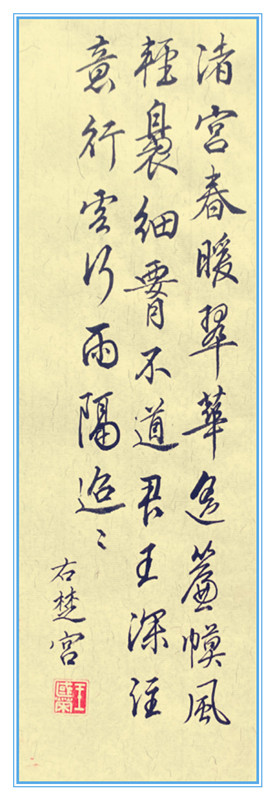 渚宮春暖翠華遙簾幙風
輕裊細腰不道君王深注
意行雲行雨隔迢〻
右楚宮